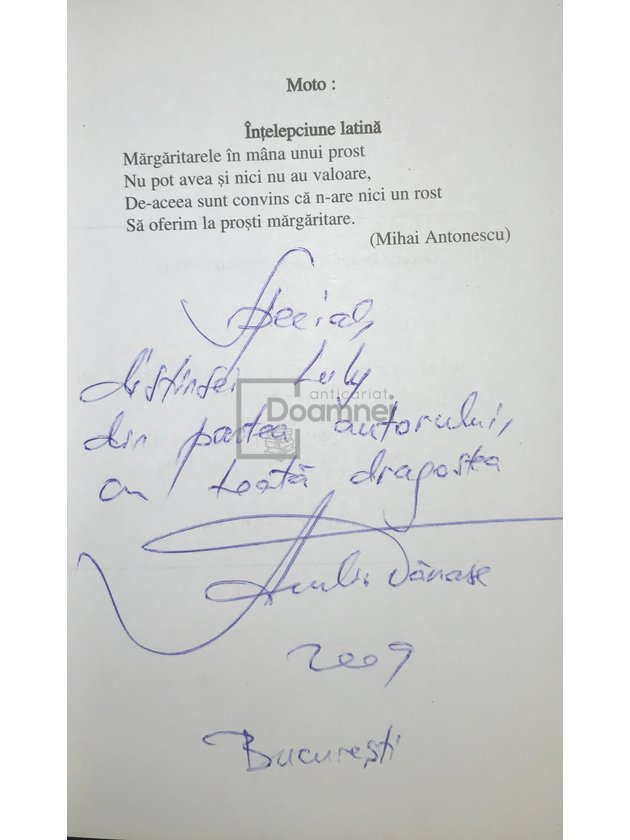 Moto :
Înțelepciune latină
Mărgăritarele în mâna unui prost
Nu pot avea și nici nu au valoare,
De-aceea sunt convins că n-are nici un rost
Să oferim la proști mărgăritare.
(Mihai Antonescu)
Special,
distinsei Luly
anticariat
Doamnei
din partea autorului,
cu toată dragostea
Vănase
2009
București